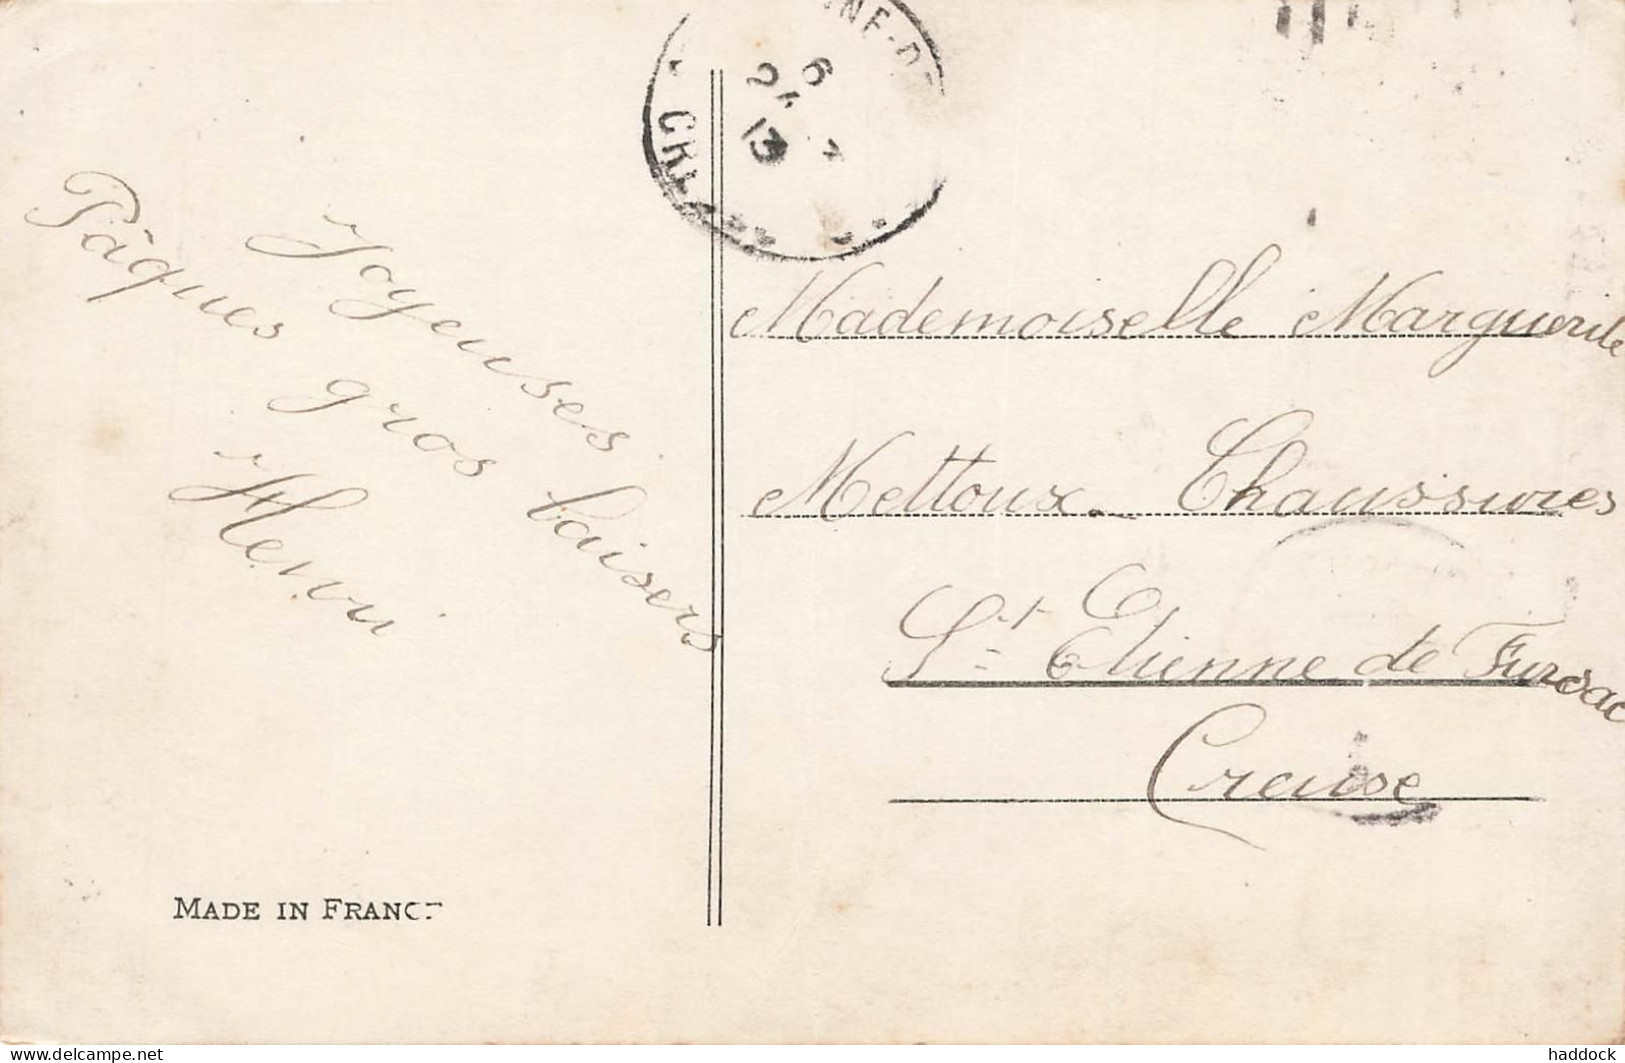 NE-DE
6
24
13
CRE
Joyeuses
Pâques
gros baisers
Henri
Mademoiselle Marguerite
Mettoux. Chaussures
St Etienne de Fursac
Creuse
MADE IN FRANCE
delcampe.net
haddock